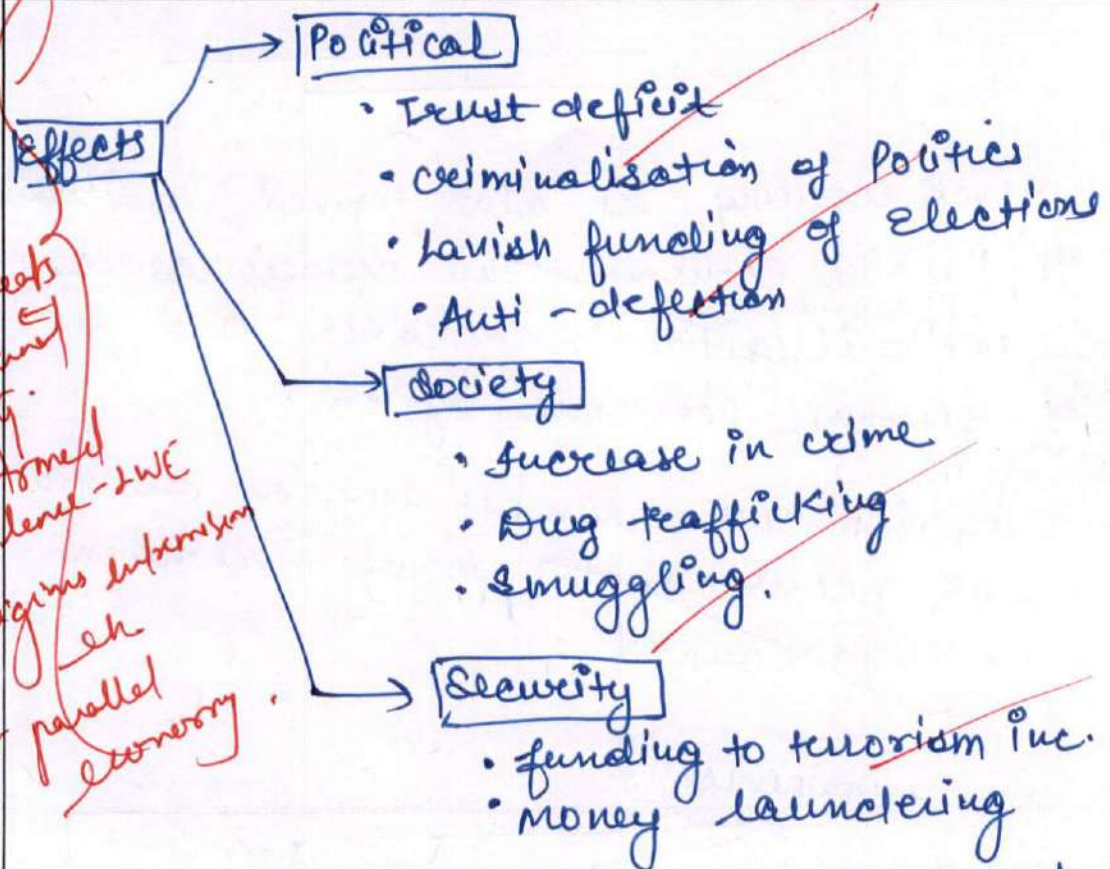 Political
• Trust deficit
Effects
• criminalisation of Politics
• Lavish funding of Elections
• Anti-defection
Society
• Increase in crime
• Drug trafficking
• Smuggling.
Security
• funding to terrorism inc.
• Money laundering
parallel
economy.